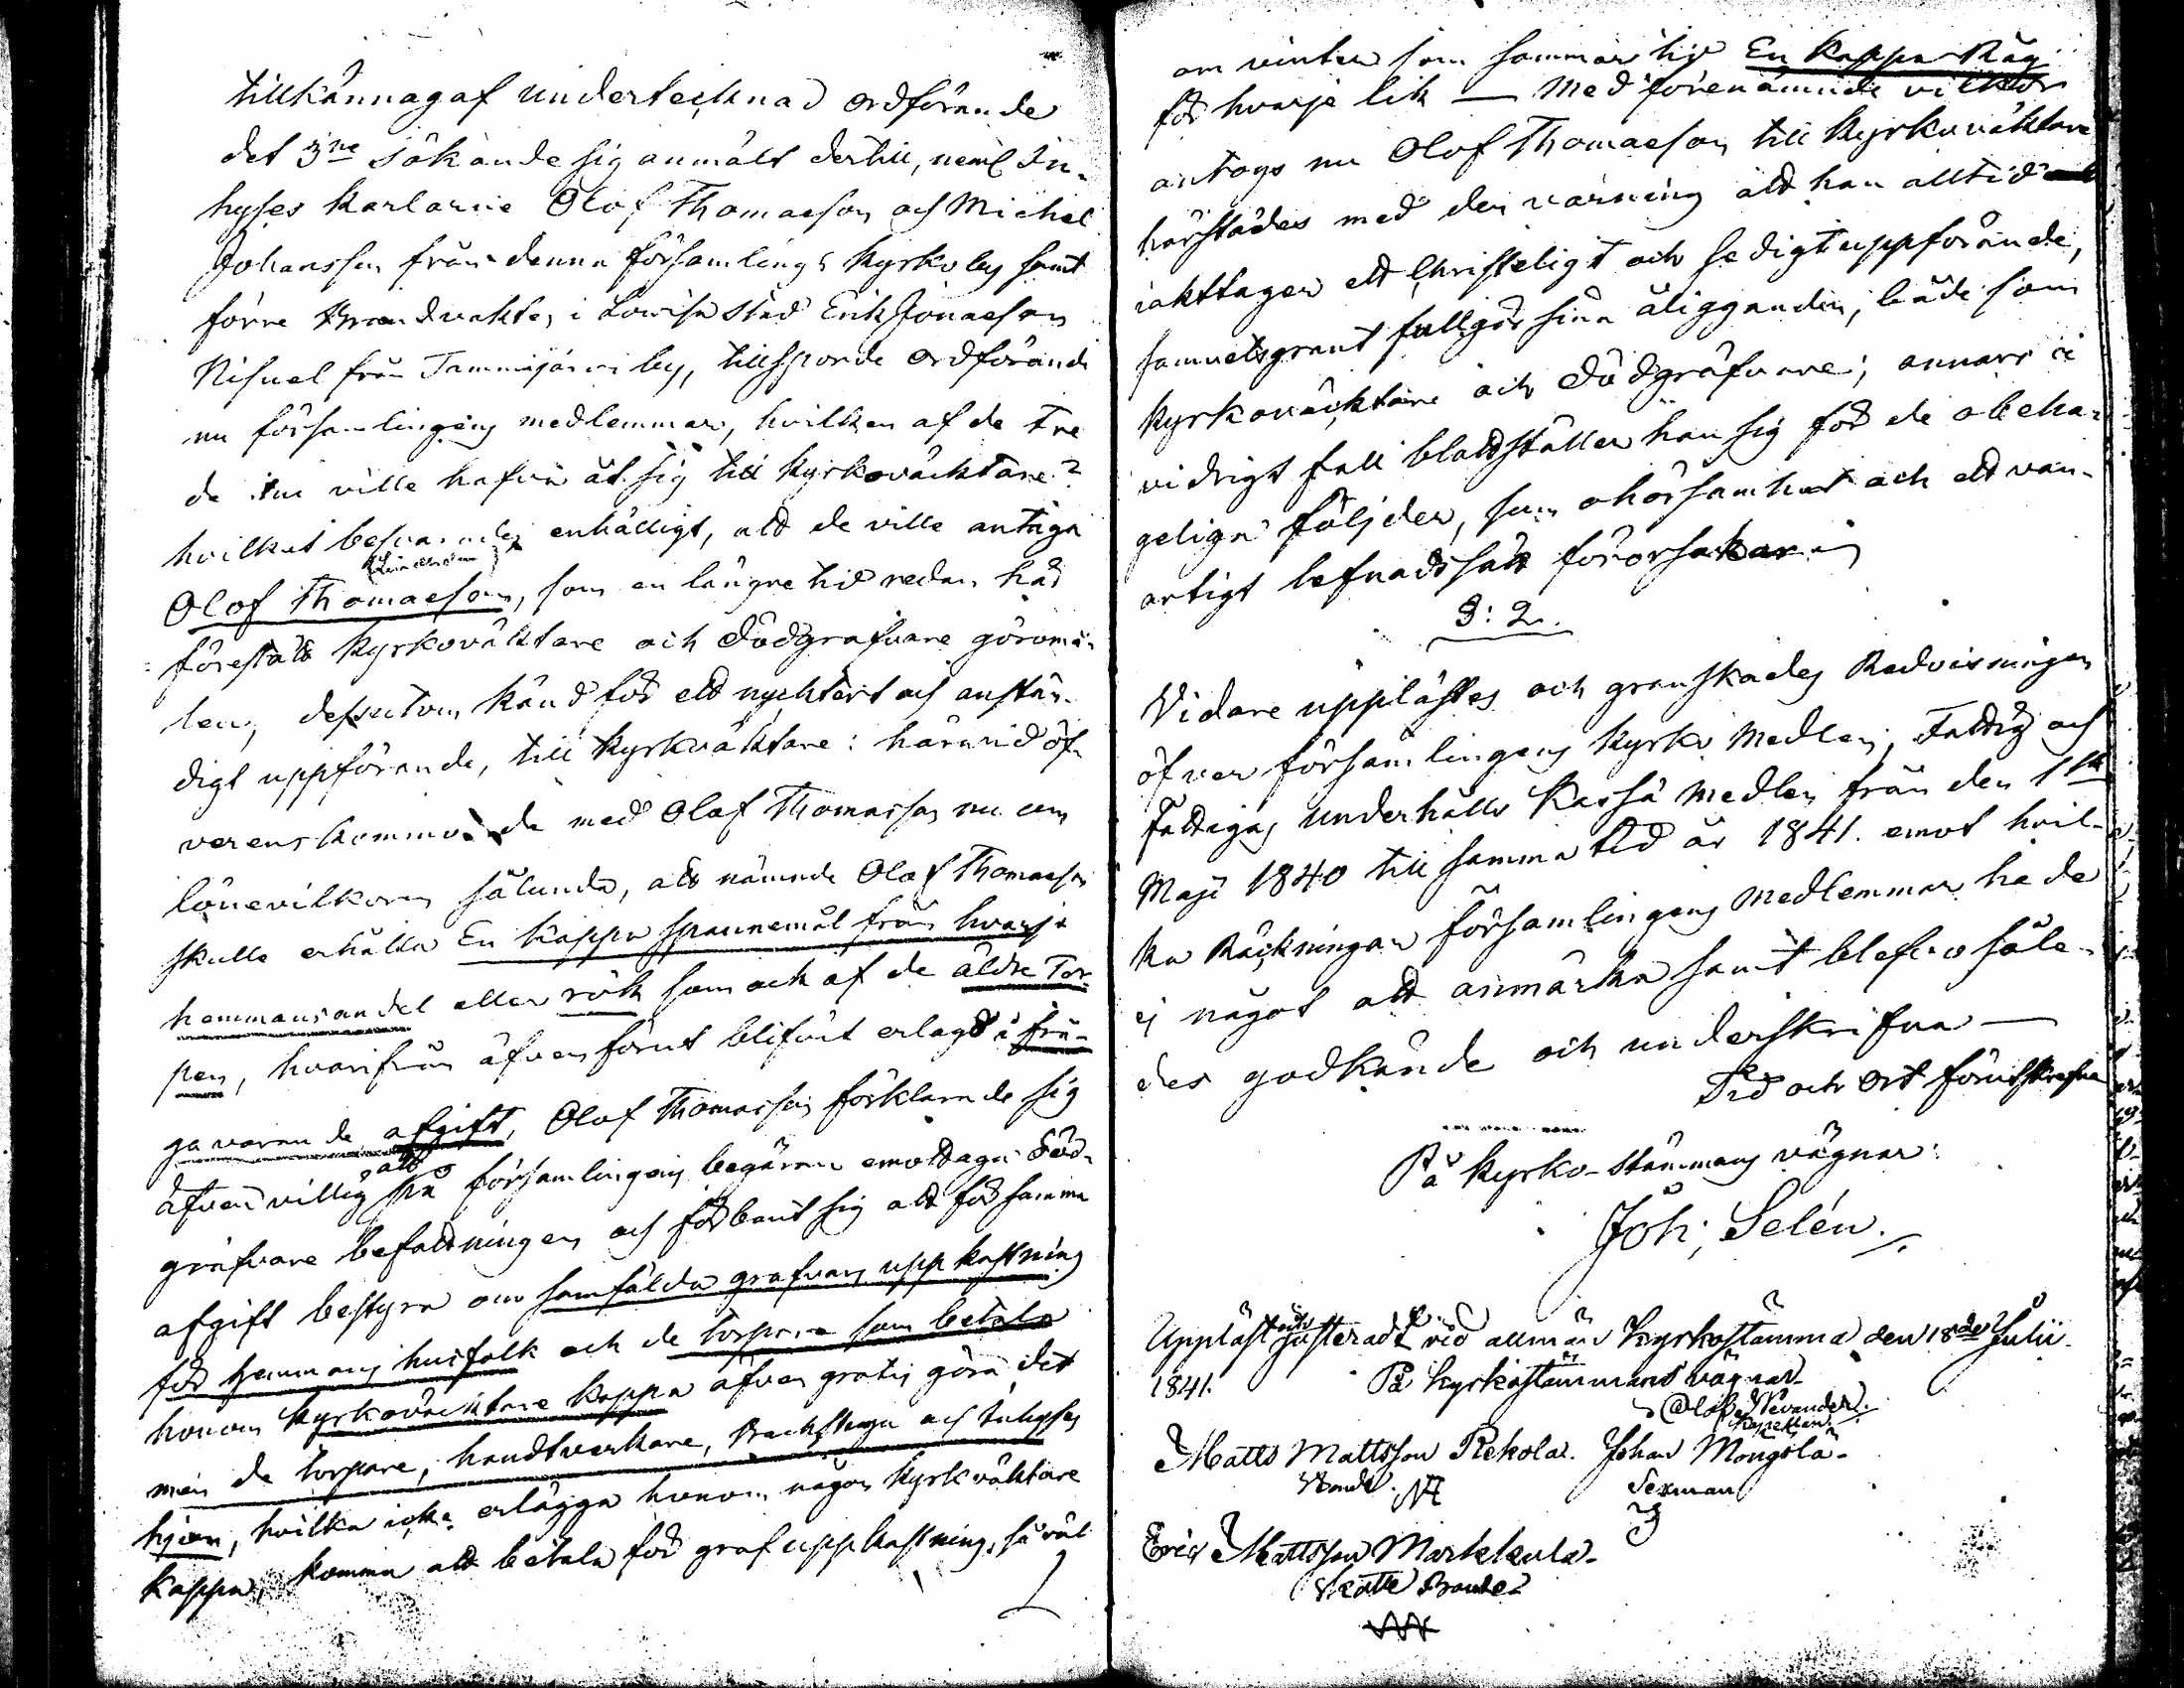 tillkännagaf undertecknad ordförande
det 3ne sökande sig anmält dertill, neml In-
hyses Karlarne Olof Thomasson och Michel
Johansson från denna församlings Kyrkoby samt
förre Brandvakten i Lovisa stad Erik Jonasson
från Tammijärvi by, tillsporde Ordförande
nu församlingens medlemmar, hvilken af de tre
de nu ville hafva åt sig till Kyrkoväcktare?
hvilket besvarades enhälligt, att de ville antaga
Olof Thomasson, som en längre tid redan här
förestått Kyrkoväktare och Dödgräfvare göromå-
len, dessutom känd för ett nycktert och anstän-
digt uppförande, till Kyrkväktare: härvid öf-
verenskommo de med Olof Thomasson nu om
lönevilkoren sålunda, att nämnde Olof Thomasson
skulle erhålla En kappa spannemål från hvarje
hemmansandel eller rök som ock af de äldre Tor-
pen, hvarifrån äfven förut blifvit erlagd i frå-
ga varande afgift, Olof Thomasson förklarade sig
äfven villig att på församlingens begäran emottaga Död-
gräfvare befattningen och förbant sig att för samma
afgift bestyra om samfälda grafvars uppkastning
för hemmans husfolk och de torpare som betala
honom Kyrkoväcktare kappa äfven gratis göra det
men de torpare, handtverkare, Backstugu och Inhyses
hjon, hvilka icke erlägga honom någon Kyrkväktare
kappa, komma att betala för graf uppkastning, så väl
om vinter som sommar tid En Kappa Råg
för hvarje lik — Med förenämnde vilkor
antogs nu Olof Thomasson till Kyrkoväktare
härstädes med den varning att han alltid
iakttager ett Christeligt och sedigt uppförande,
samvetsgrant fullgör sina åligganden, både som
Kyrkoväcktare och Dödgräfvare; annars i
vidrigt fall blottställer han sig för de obeha-
gelige följder, som ohörsamhet och ett van-
artigt lefnadssätt förorsakar.
§: 2.
Vidare upplästes och granskades Redvisningen
öfver församlingens Kyrko Medlen, Fattig och
Fattigas underhålls Kassa Medlen från den 1sta
Maji 1840 till samma tid år 1841. emot hvil-
ka Räckningar församlingens Medlemmar hade
ej något att anmärka samt blefvo såle-
des godkände och underskrifna —
Tid och Ort förutskrefne
På Kyrko-stämmans vägnar:
Joh; Selén.
Uppläst och justeradt vid allmän Kyrkostämma den 18de Julii
1841. På Kyrkostämmans vägnar
Olof Nevander.
Kapellan.
Matts Mattsson Rekola. Johan Mongola.
Bonde. Sexman
Eric Mattsson Markkula.
Skatte Bonde